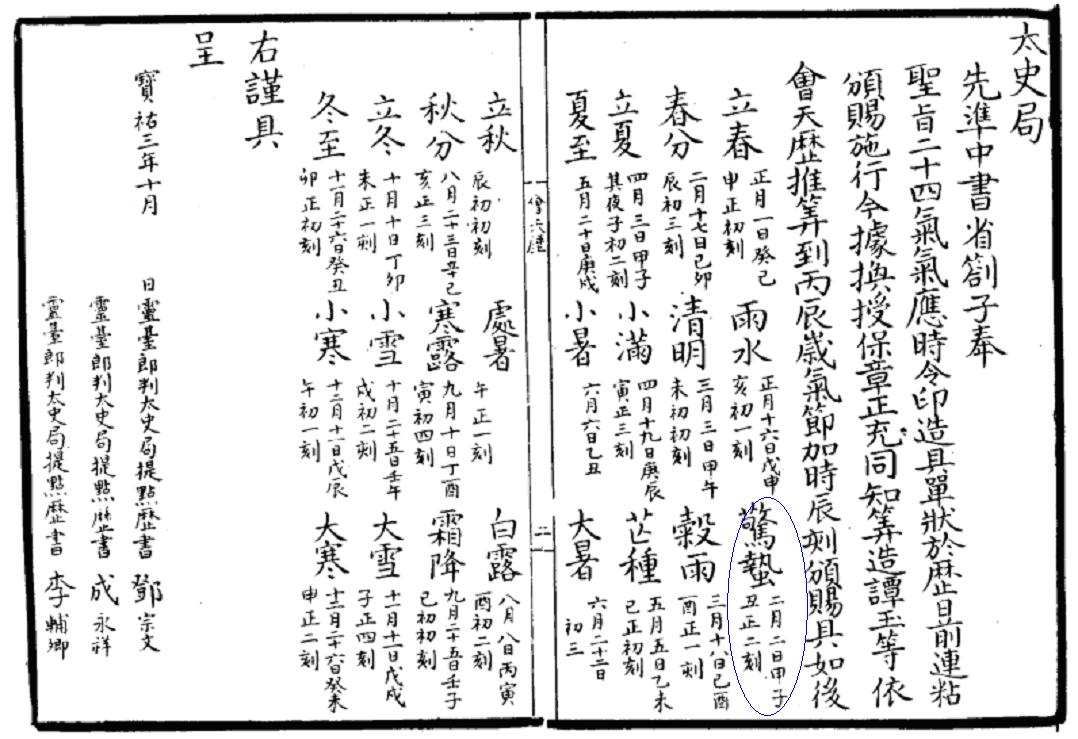 太史局
先準中書省劄子奉
聖旨二十四氣氣應時令印造具單狀於歴日前連粘
頒賜施行今據換授保章正充同知筭造譚玉等依
會天歴推筭到丙辰歳氣節加時辰刻頒賜具如後
立春 正月一日癸巳 申正初刻 雨水 正月十六日戊申 亥初一刻 驚蟄 二月二日甲子 丑正二刻
春分 二月十七日己卯 辰初三刻 清明 三月三日甲午 未初初刻 穀雨 三月十八日己酉 酉正一刻
立夏 四月三日甲子 其夜子初二刻 小滿 四月十九日庚辰 寅正三刻 芒種 五月五日乙未 巳正初刻
夏至 五月二十日庚戌 小暑 六月六日乙丑 大暑 六月二十二日 初三
會天歴 二
立秋 辰初初刻 處暑 午正一刻 白露 八月八日丙寅 酉初二刻
秋分 八月二十三日辛巳 亥正三刻 寒露 九月十日丁酉 寅初四刻 霜降 九月二十五日壬子 巳初初刻
立冬 十月十日丁卯 未正一刻 小雪 十月二十五日壬午 戌初二刻 大雪 十一月十一日戊戌 子正四刻
冬至 十一月二十六日癸丑 卯正初刻 小寒 十二月十一日戊辰 午初一刻 大寒 十二月二十六日癸未 申正二刻
右謹具
呈
寶祐三年十月 日靈臺郎判太史局提點歴書 鄧宗文
靈臺郎判太史局提點歴書 成永祥
靈臺郎判太史局提點歴書 李輔卿